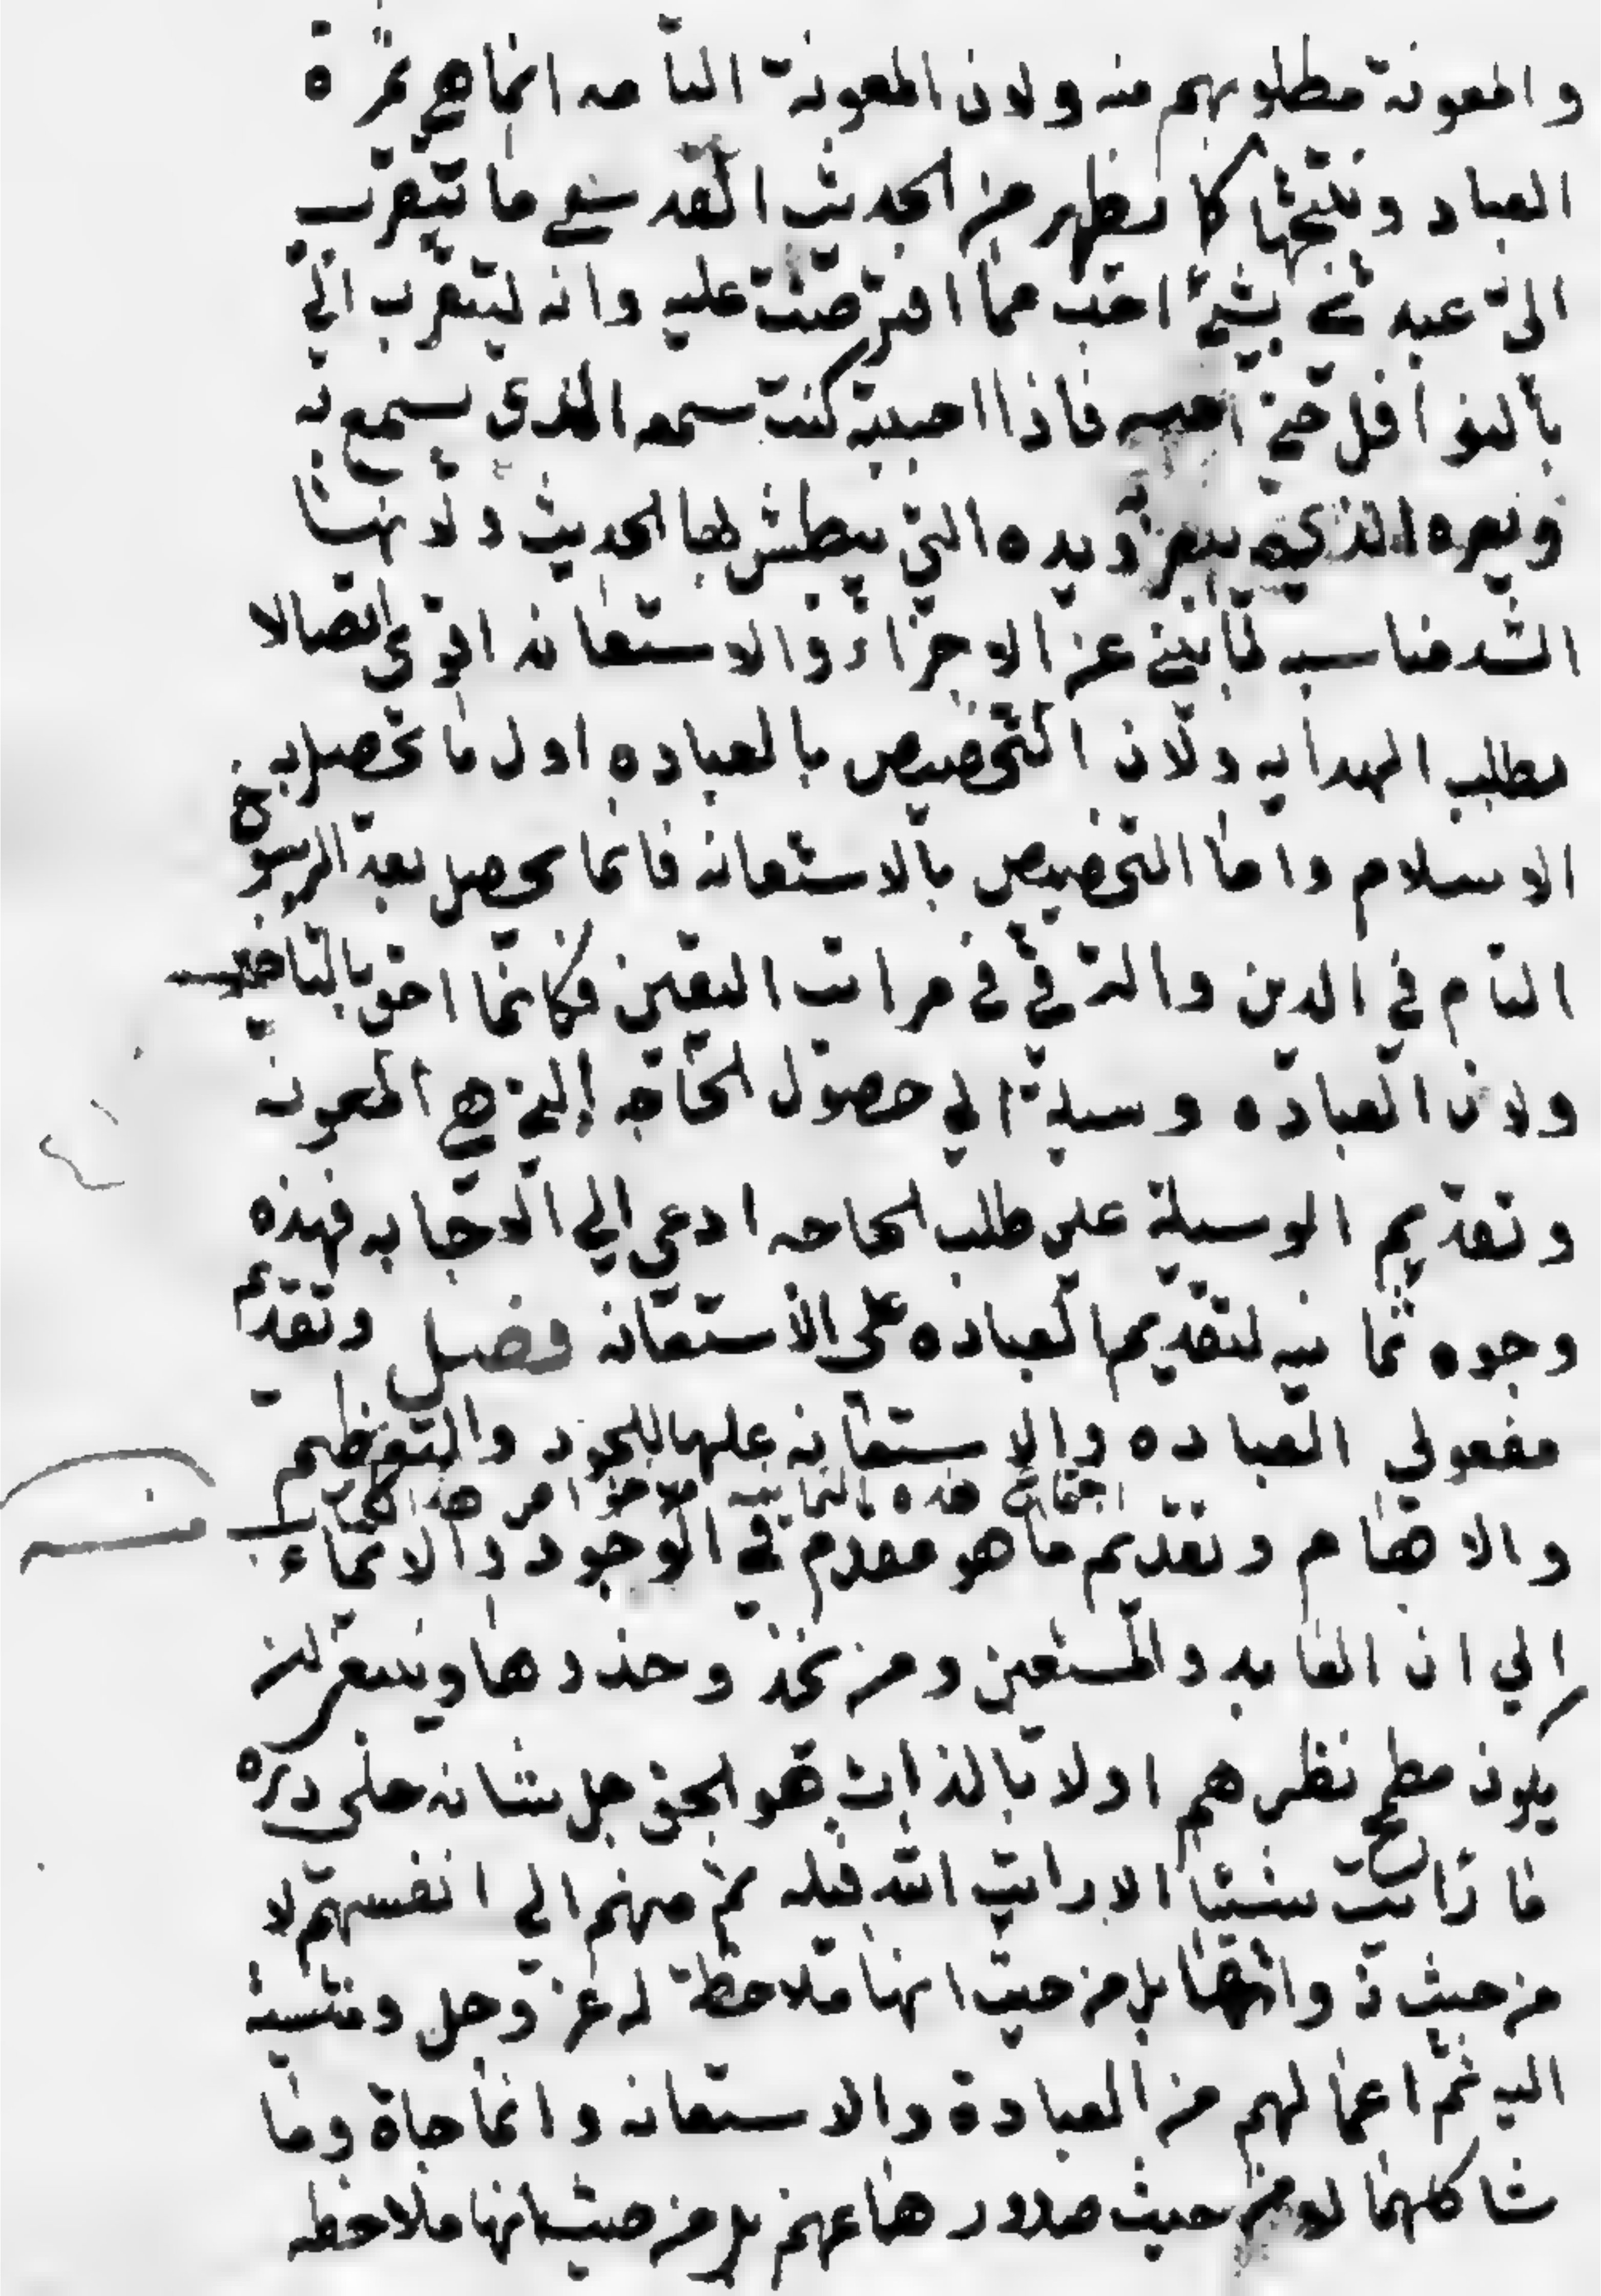 والمعونة مطلوبهم منه ولان المعونة التامه انما هي ثمرة
العباد ونتيجتها كما يظهر من الحديث القدسي ما تقرب
الي عبدي بشيء احب مما افترضت عليه وانه ليتقرب الي
بالنوافل حتي احبه فاذا احببته كنت سمعه الذي يسمع به
وبصره الذي يبصر ويده التي يبطش بها الحديث ولانها
اشد مناسبه لما ينبئ عن الاجزاء والاستعانه اقوي اتصالا
بطلب الهدايه ولان التخصيص بالعباده اول ما يحصل به
الاسلام واما التخصيص بالاستعانه فانما يحصل بعد الرسوخ
التام في الدين والترقي في مراتب اليقين فكانما احق بالتاخير
ولان العباده وسيلة الي حصول الحاجه التي هي المعونه
وتقديم الوسيلة علي طلب الحاجه ادعي الي الاجابه فهذه
وجوه ثمانيه لتقديم العباده علي الاستعانه فصل وتقديم
مفعولي العباده والاستعانه عليها للحصر والتعظيم
هذه الثمانيه هذا
والاهتمام وتقديم ما هو مقدم في الوجود والايماء
الي ان العابد والمستعين ومن يحذو حذوها ينبغي ان
يكون مطمح نظرهم اولا بالذات هو الحق جل شانه علي وتيره
ما رايت شيئا الا رايت الله قبله ثم منهم الي انفسهم لا
من حيث ذواتها بل من حيث انها ملاحظة له عز وجل ومنتسبة
اليه ثم اعمالهم من العبادة والاستعانه وانماجاة وما
شاكلهما لا من حيث صدورها عنهم بل من حيث انها ملاحظه